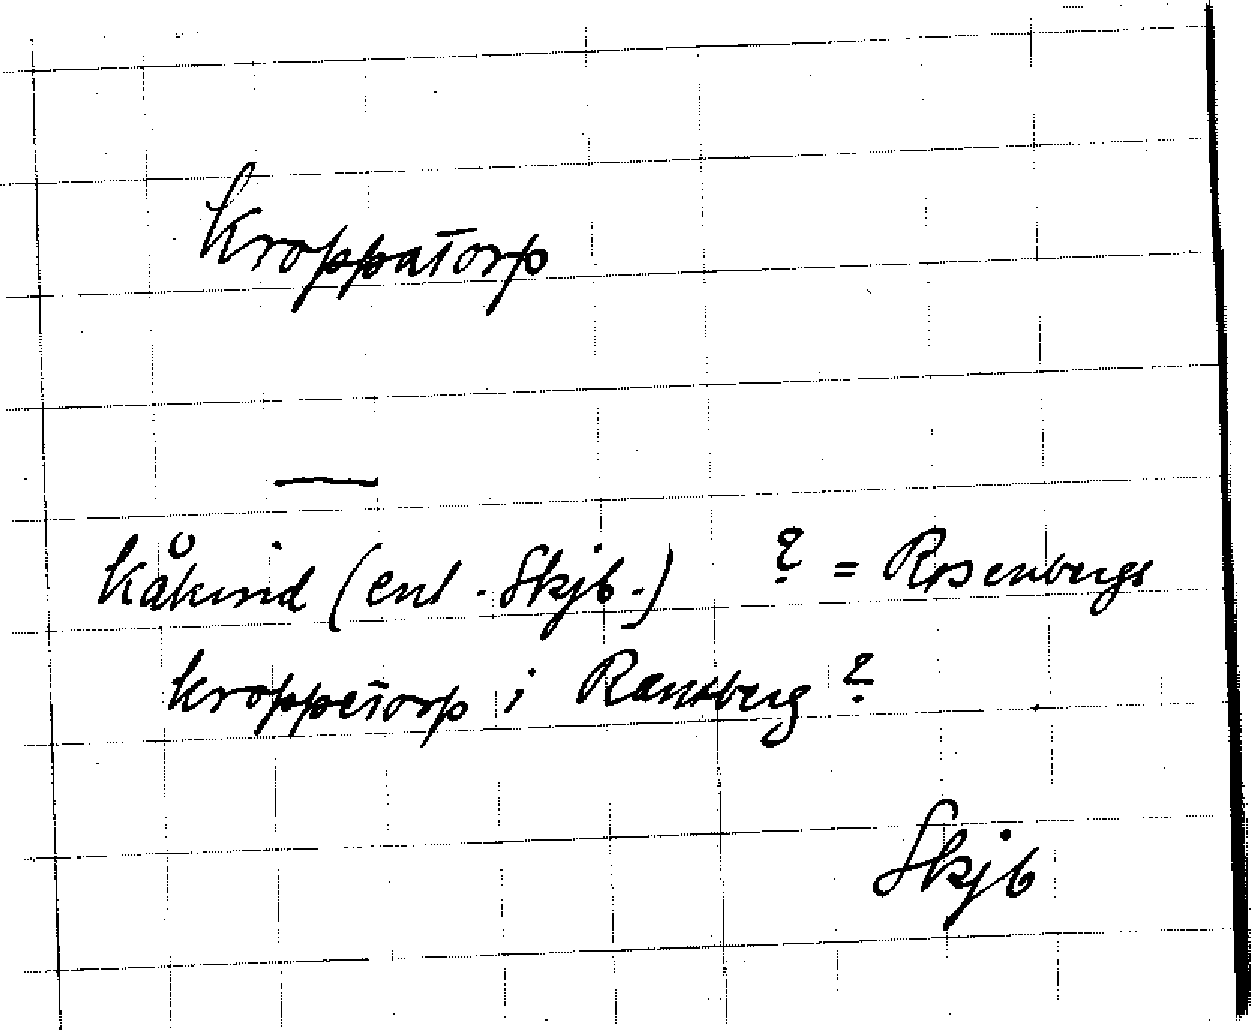 Kroppatorp
—
Kåkind (enl. Skjb.) ? = Rosenbergs
Kroppetorp i Ransberg ?
Skjb